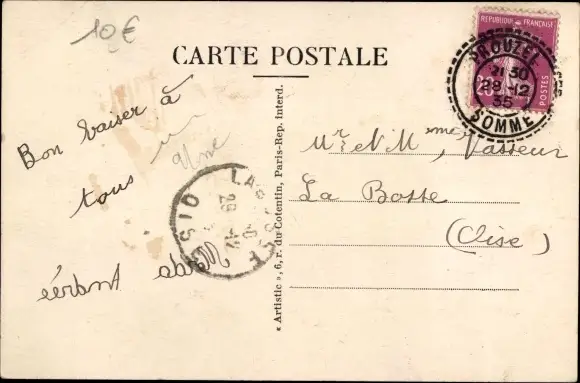 10€
CARTE POSTALE
REPUBLIQUE FRANÇAISE
20c
POSTES
PROUZEL
21 30
28-12
35
SOMME
Bon baiser à
tous
Mr et Mme Vasseur
La Bosse
(Oise)
LA
OISE
29
« Artistic », 6, r. du Cotentin, Paris-Rep. interd.